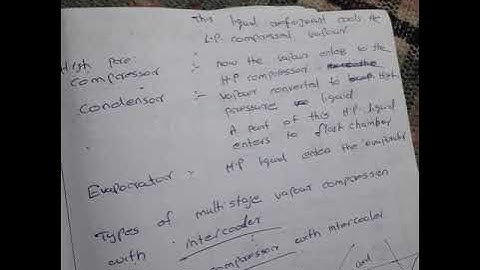 This liquid refrigerant cools the
L.P. compressed vapour
High Pre:
compressor :- now the vapour enters to the
H.P compressor
Condensor :- vapour converted to High
pressure liquid
A part of this H.P. liquid
enters to flash chamber
Evaporator - H.P liquid enters the evaporator
Types of multistage vapour compression
with intercooler
compressor with intercooler
and